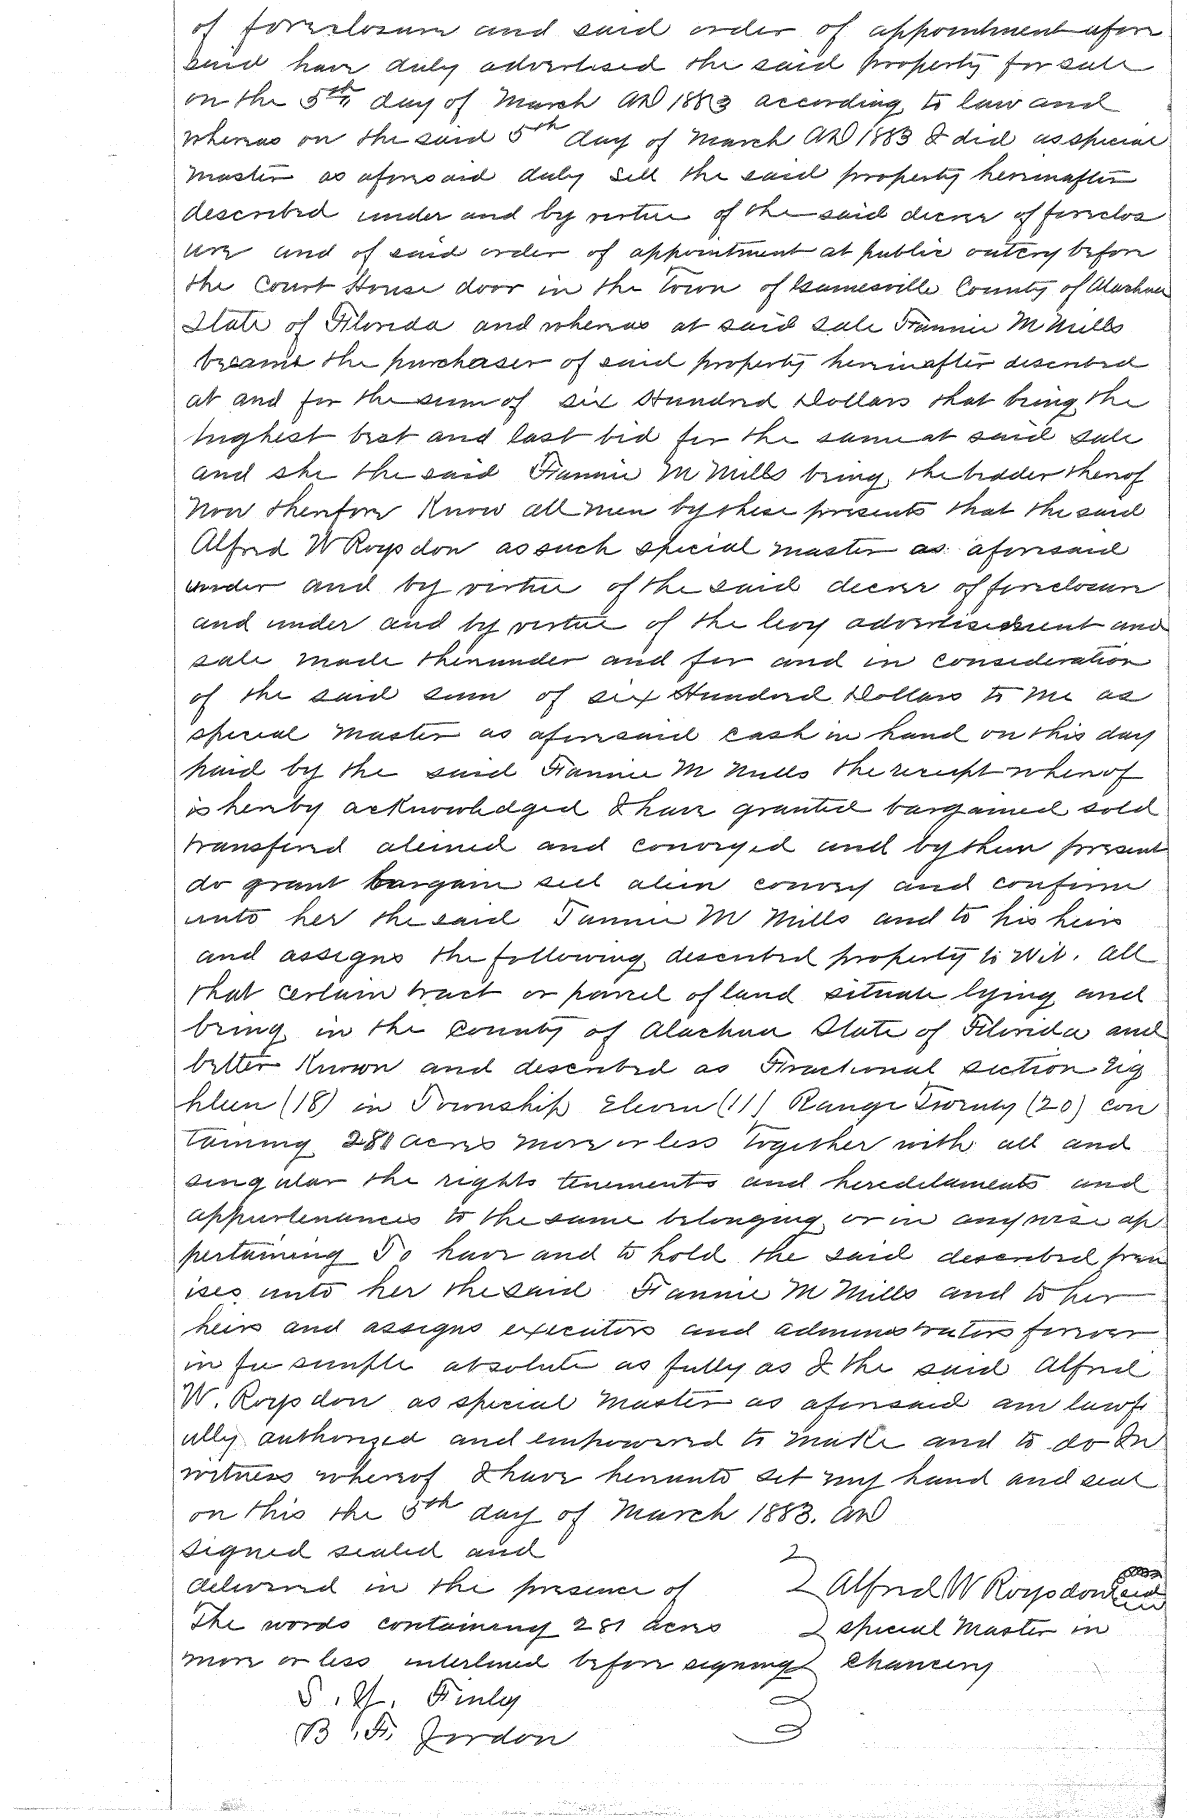 of foreclosure and said order of appointment afore
said have duly advertised the said property for sale
on the 5th day of March AD 1883 according to law and
whereas on the said 5th day of March AD 1883 I did as special
Master as aforesaid duly sell the said property hereinafter
described under and by virtue of the said decree of foreclos
ure and of said order of appointment at public outcry before
the Court House door in the Town of Gainesville County of Alachua
State of Florida and whereas at said sale Fannie M Mills
became the purchaser of said property hereinafter described
at and for the sum of six Hundred Dollars that being the
highest best and last bid for the same at said sale
and she the said Fannie M Mills being the bidder thereof
Now therefore Know all men by these presents that the said
Alfred W Roysdon as such special master as aforesaid
under and by virtue of the said decree of foreclosure
and under and by virtue of the levy advertisement and
sale made thereunder and for and in consideration
of the said sum of six Hundred Dollars to me as
special Master as aforesaid cash in hand on this day
paid by the said Fannie M Mills the receipt whereof
is hereby acknowledged I have granted bargained sold
transfered aliened and conveyed and by these present
do grant bargain sell alien convey and confirm
unto her the said Fannie M Mills and to his heirs
and assigns the following described property to Wit. All
that certain tract or parcel of land situate lying and
being in the County of Alachua State of Florida and
better Known and described as Fractional section Eig
hteen (18) in Township Eleven (11) Range Twenty (20) con
taining 281 acres more or less together with all and
singular the rights tenements and heredetaments and
appurtenances to the same belonging or in anywise ap
pertaining To have and to hold the said described prem
ises unto her the said Fannie M Mills and to her
heirs and assigns executors and administrators forever
in fee simple absolute as fully as I the said Alfred
W. Roysdon as special Master as aforesaid am lawf
ully authorized and empowered to make and to do In
witness whereof I have hereunto set my hand and seal
on this the 5th day of March 1883. AD
signed sealed and
delivered in the presence of Alfred W Roysdon seal
The words containing 281 acres special Master in
more or less interlined before signing Chancery
S. Y. Finley
B. F. Jordon